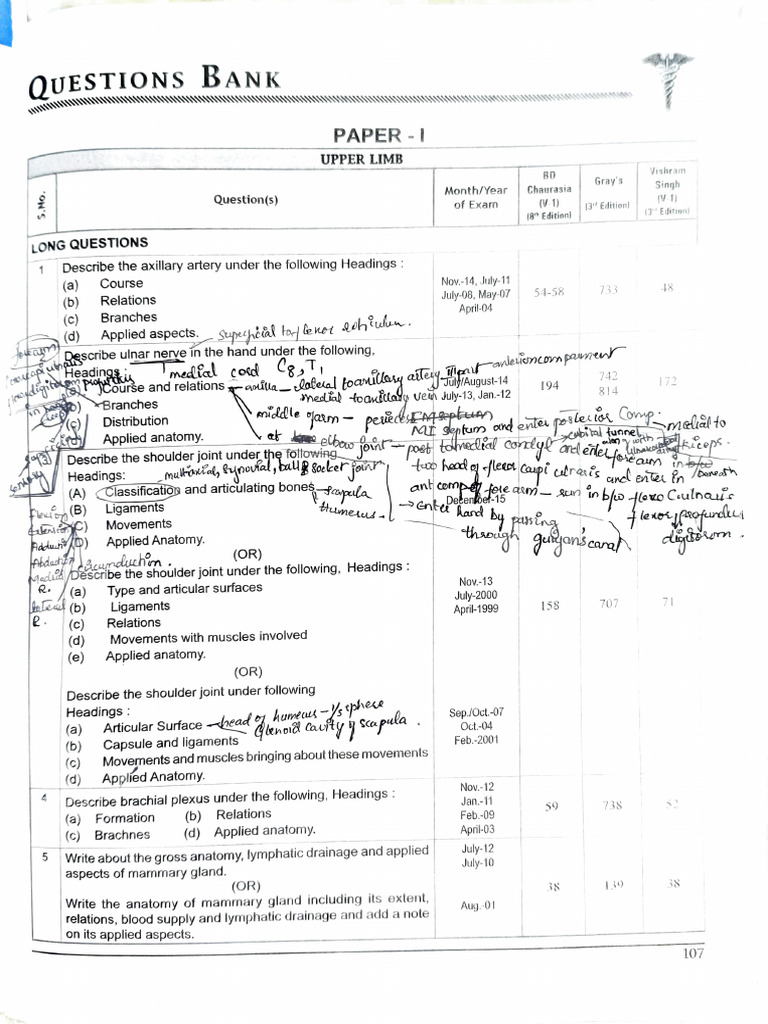 QUESTIONS BANK
PAPER - I
UPPER LIMB
S.No.
Question(s)
Month/Year of Exam
BD Chaurasia (V-1) (8th Edition)
Gray's (3rd Edition)
Vishram Singh (V-1) (3rd Edition)
LONG QUESTIONS
1 Describe the axillary artery under the following Headings :
(a) Course
(b) Relations
(c) Branches
(d) Applied aspects.
superficial to flexor
Nov.-14, July-11
July-08, May-07
April-04
54-58 733 48
Describe ulnar nerve in the hand under the following,
Headings
medial cord C8, T1
Course and relations
axilla - lateral to axillary artery III part anterior compartment
medial to axillary vein
July/August-14
July-13, Jan.-12
194 742 814 172
Branches
middle of arm -
MI septum and enter posterior comp. - medial to
(c) Distribution
Applied anatomy.
at elbow joint - post to medial condyl and enter forearm in b/w
cubital tunnel
Describe the shoulder joint under the following
two head of flexor carpi ulnaris and enter in
beneath
Headings:
multiaxial, synovial, ball & socket joint
(A) Classification and articulating bones
scapula
humerus
ant comp of forearm - run in b/w flexo C. ulnaris
(B) Ligaments
December-15
enter hand by passing
flexor profundus
(C) Movements
through guyan's canal
digitorom.
(D) Applied Anatomy.
Flexion
Extension
Adduction
Abduction
Medial R.
lateral R.
(OR)
Describe the shoulder joint under the following, Headings :
(a) Type and articular surfaces
(b) Ligaments
(c) Relations
(d) Movements with muscles involved
(e) Applied anatomy.
Nov.-13
July-2000
April-1999
158 707 71
(OR)
Describe the shoulder joint under following
Headings :
(a) Articular Surface
head of humerus - 1/3 sphere
Glenoid cavity of scapula.
(b) Capsule and ligaments
(c) Movements and muscles bringing about these movements
(d) Applied Anatomy.
Sep./Oct.-07
Oct.-04
Feb.-2001
4 Describe brachial plexus under the following, Headings :
(a) Formation (b) Relations
(c) Brachnes (d) Applied anatomy.
Nov.-12
Jan.-11
Feb.-09
April-03
59 738 52
5 Write about the gross anatomy, lymphatic drainage and applied
aspects of mammary gland.
July-12
July-10
(OR)
38 139 38
Write the anatomy of mammary gland including its extent,
relations, blood supply and lymphatic drainage and add a note
on its applied aspects.
Aug.-01
107